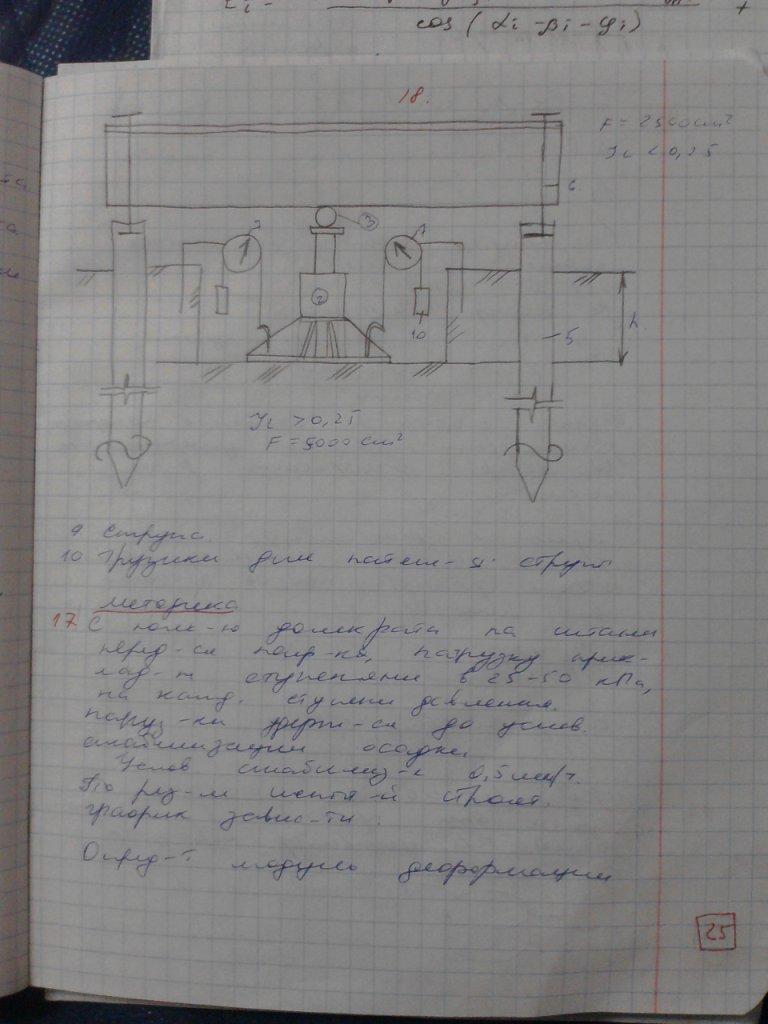 cos (αi - βi - φi) +
18.
F = 2500 cm²
JL < 0,25
6
3
2
10
5
h
JL > 0,25
F = 5000 cm²
9 Струна
10 Грузики для натяж-я струн
Методика
17 С пом-ю домкрата на штамп
перед-ся нагр-ка, нагрузку прик-
лад-т ступенями в 25-50 кПа,
на кажд. ступени давления
нагруз-ки держ-ся до услов.
стабилизации осадки
Услов стабилиз-и 0,5 мм/ч.
По рез-м испыт-й строят
график завис-ти
Опред-т модуль деформации
25